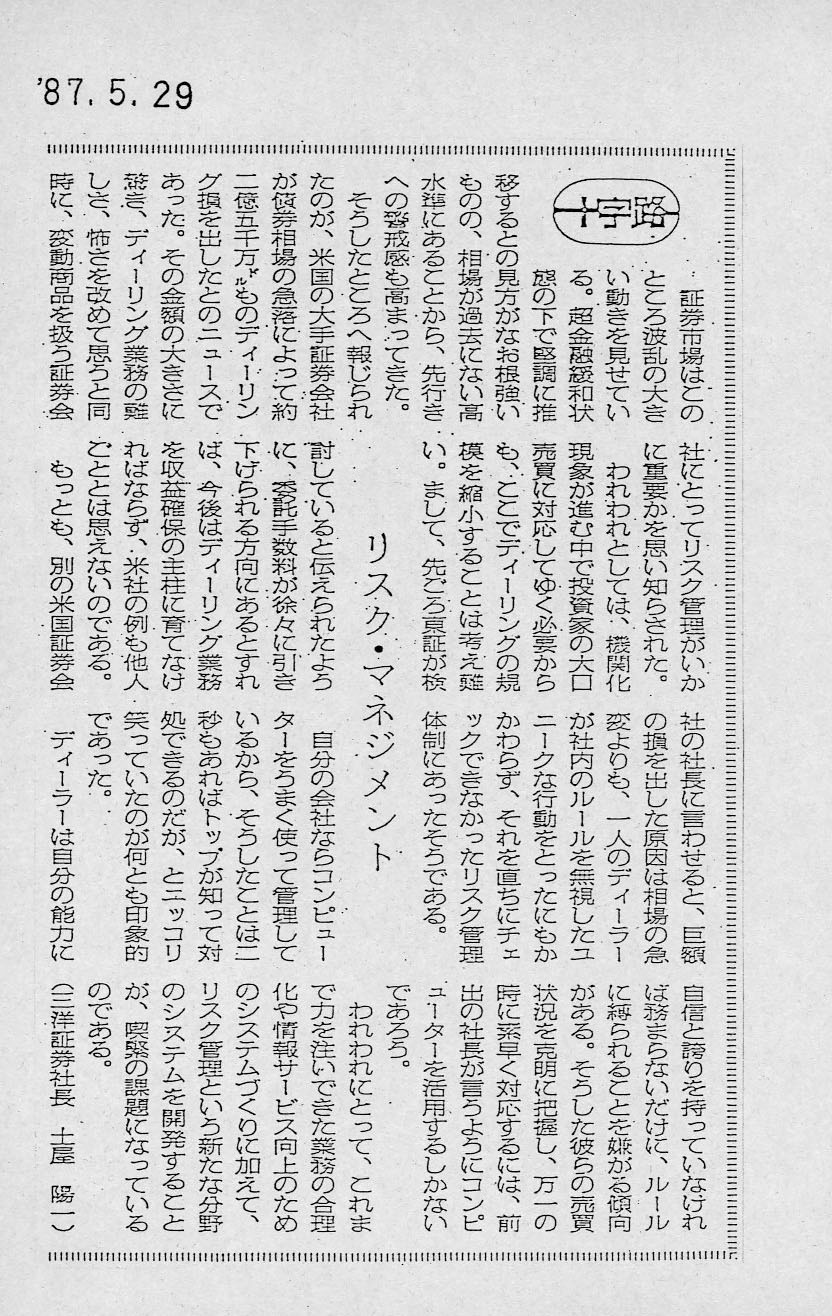 '87.5.29
十字路
リスク・マネジメント
証券市場はこの
ところ波乱の大き
い動きを見せてい
る。超金融緩和状
態の下で堅調に推
移するとの見方がなお根強い
ものの、相場が過去にない高
水準にあることから、先行き
への警戒感も高まってきた。
そうしたところへ報じられ
たのが、米国の大手証券会社
が債券相場の急落によって約
二億五千万㌦ものディーリン
グ損を出したとのニュースで
あった。その金額の大きさに
驚き、ディーリング業務の難
しさ、怖さを改めて思うと同
時に、変動商品を扱う証券会
社にとってリスク管理がいか
に重要かを思い知らされた。
われわれとしては、機関化
現象が進む中で投資家の大口
売買に対応してゆく必要から
も、ここでディーリングの規
模を縮小することは考え難
い。まして、先ごろ東証が検
討していると伝えられたよう
に、委託手数料が徐々に引き
下げられる方向にあるとすれ
ば、今後はディーリング業務
を収益確保の主柱に育てなけ
ればならず、米社の例も他人
ごととは思えないのである。
もっとも、別の米国証券会
社の社長に言わせると、巨額
の損を出した原因は相場の急
変よりも、一人のディーラー
が社内のルールを無視したユ
ニークな行動をとったにもか
かわらず、それを直ちにチェ
ックできなかったリスク管理
体制にあったそうである。
自分の会社ならコンピュー
ターをうまく使って管理して
いるから、そうしたことは二
秒もあればトップが知って対
処できるのだが、とニッコリ
笑っていたのが何とも印象的
であった。
ディーラーは自分の能力に
自信と誇りを持っていなけれ
ば務まらないだけに、ルール
に縛られることを嫌がる傾向
がある。そうした彼らの売買
状況を克明に把握し、万一の
時に素早く対応するには、前
出の社長が言うようにコンピ
ューターを活用するしかない
であろう。
われわれにとって、これま
で力を注いできた業務の合理
化や情報サービス向上のため
のシステムづくりに加えて、
リスク管理という新たな分野
のシステムを開発すること
が、喫緊の課題になっている
のである。
（三洋証券社長　土屋　陽一）